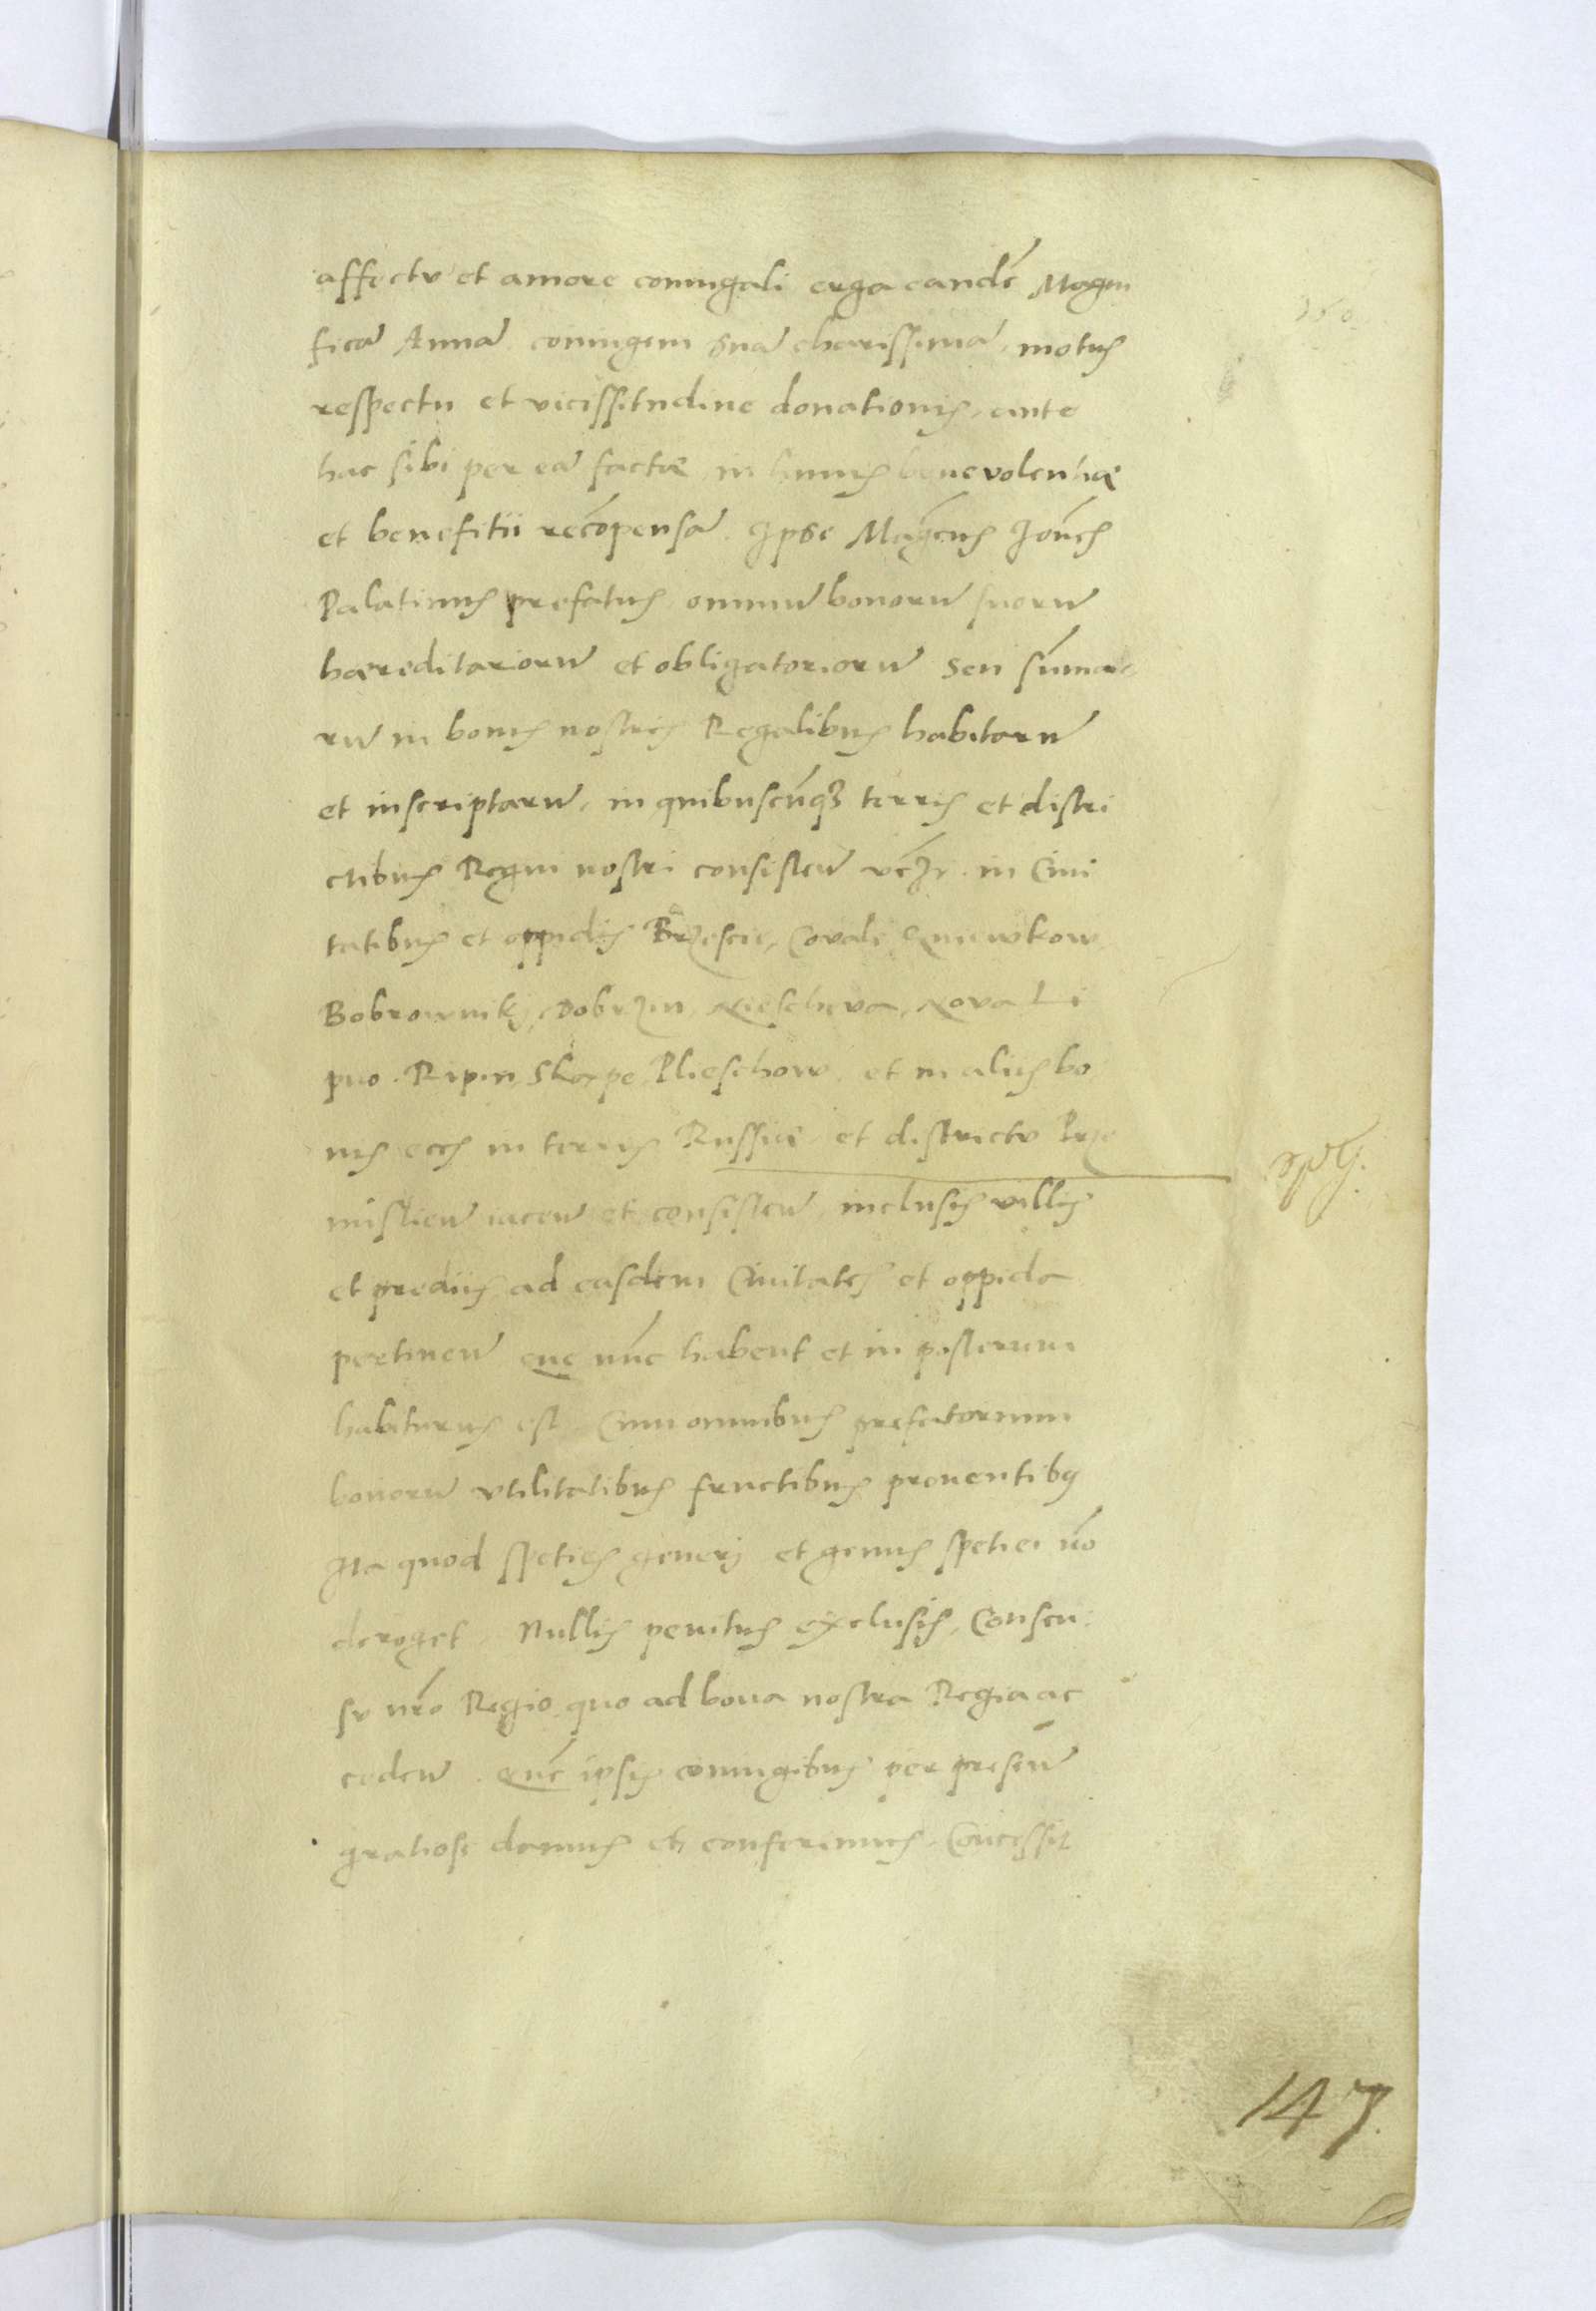 affectu et amore coniugali erga eandē Magni
ficā Annā coniugem suā charissimā motus
respectu et vicissitudine donationis, ante
hac sibi per eā factæ in huius benevolentiæ
et benefitii recōpensā. Ipse Magcus Joānes
Palatinus prefatus omniū bonorū suorū
hæreditariorū et obligatoriorū seu sūma
rū in bonis nostris Regalibus habitarū
et inscriptarū, in quibuscūq3 terris et distri
ctibus Regni nostri consisteñ vcz. in Civi
tatibus et oppidis Brzescie, Covale, Gniewkow
Bobrowniki, Dobrzin, Niescheva, Nova Li
pno. Ripin, Skąpe, Plieschow et in aliis bo
nis ecs in terris Russiæ et districtu Prze
mislieñ iaceñ et consisteñ, inclusis villis
et prediis ad easdem Civitates et oppida
pertineñ que nūc habent et in posterum
habiturus est. Cum omnibus prefatorum
bonorū utilitatibus fructibus proventibq
Ita quod speties generi et genus spetiei nō
deroget. Nullis penitus exclusis, Consen
su nrō Regio quo ad bona nostra Regia ac
cedeñ. quē ipsis coniugibus per preseñ
gratiose damus et conferimus. Concessit
147.